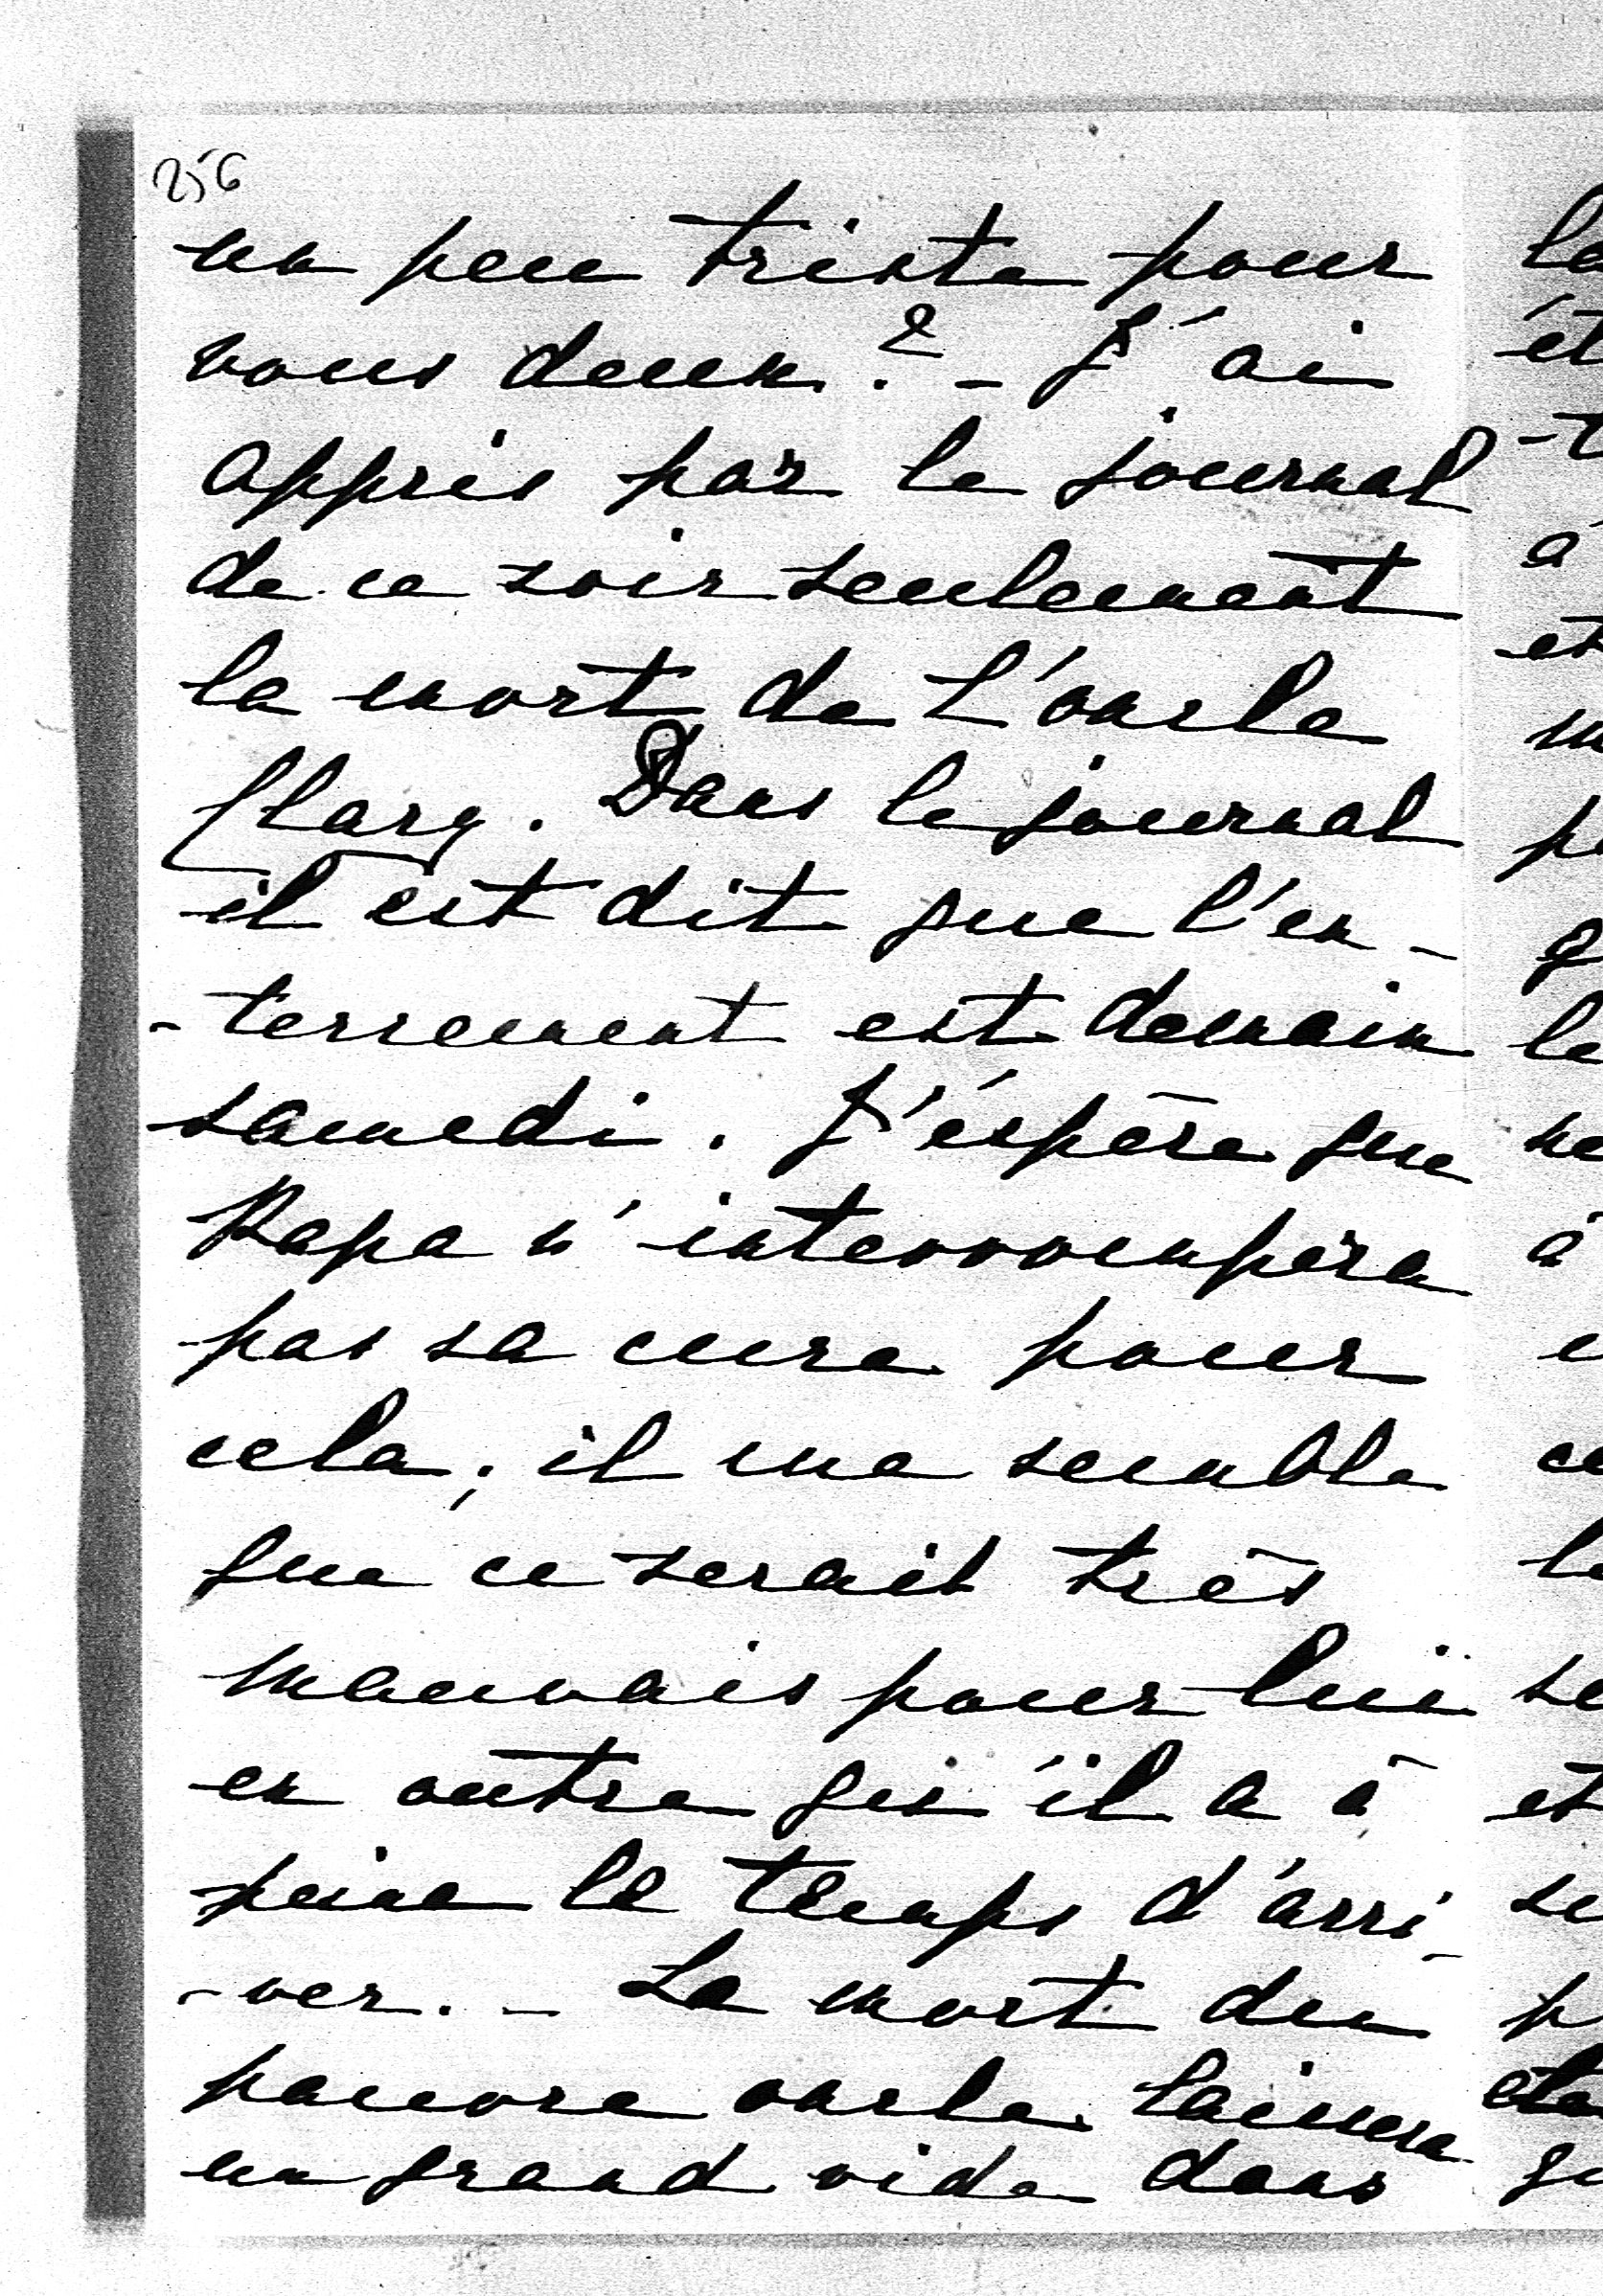 256
un peu triste pour
vous deux ? - J'ai
appris par le journal
de ce soir seulement
la mort de L'oncle
Clary. Dans le journal
il est dit que l'en-
-terrement est demain
samedi. J'éspère que
Papa n'interrompera
pas sa cure pour
cela; il me semble
que ce serait très
mauvais pour lui
en outre qu'il a à
peine le temps d'arri-
-ver. - La mort du
pauvre oncle laissera
un grand vide dans